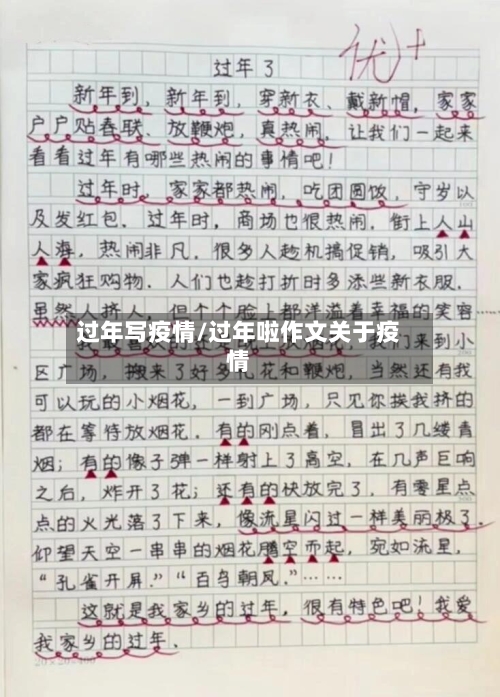 优+
过年了
新年到，新年到，穿新衣、戴新帽，家家
户户贴春联、放鞭炮，真热闹，让我们一起来
看看过年有哪些热闹的事情吧！
过年时，家家都热闹，吃团圆饭，守岁以
及发红包．过年时，商场也很热闹，街上人山
人海，热闹非凡．很多人趁机搞促销，吸引大
家疯狂购物．人们也趁打折时多添些新衣服．
虽然人挤人，但个个脸上都洋溢着幸福的笑容
过年写疫情/过年啦作文关于疫
情
我们来到小
区广场，搬来了好多礼花和鞭炮，当然还有我
可以玩的小烟花，一到广场，只见你挨我挤的
都在等待放烟花．有的刚点着，冒出了几缕青
烟；有的像子弹一样射上了高空，在几声巨响
之后，炸开了花；还有的快放完了，有零星点
点的火光落了下来，像流星闪过一样美丽极了．
仰望天空一串串的烟花腾空而起，宛如流星，
“孔雀开屏．”“百鸟朝凤．”……
这就是我家乡的过年，很有特色吧！我爱
我家乡的过年．
20×20=400